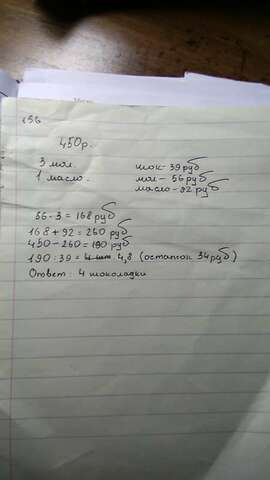 156
450р.
3 мол.
1 масло.
шок - 39 руб
мол - 56 руб
масло - 92 руб
56 · 3 = 168 руб
168 + 92 = 260 руб
450 - 260 = 190 руб
190 : 39 = 4,8 (остаток 34 руб)
Ответ: 4 шоколадки